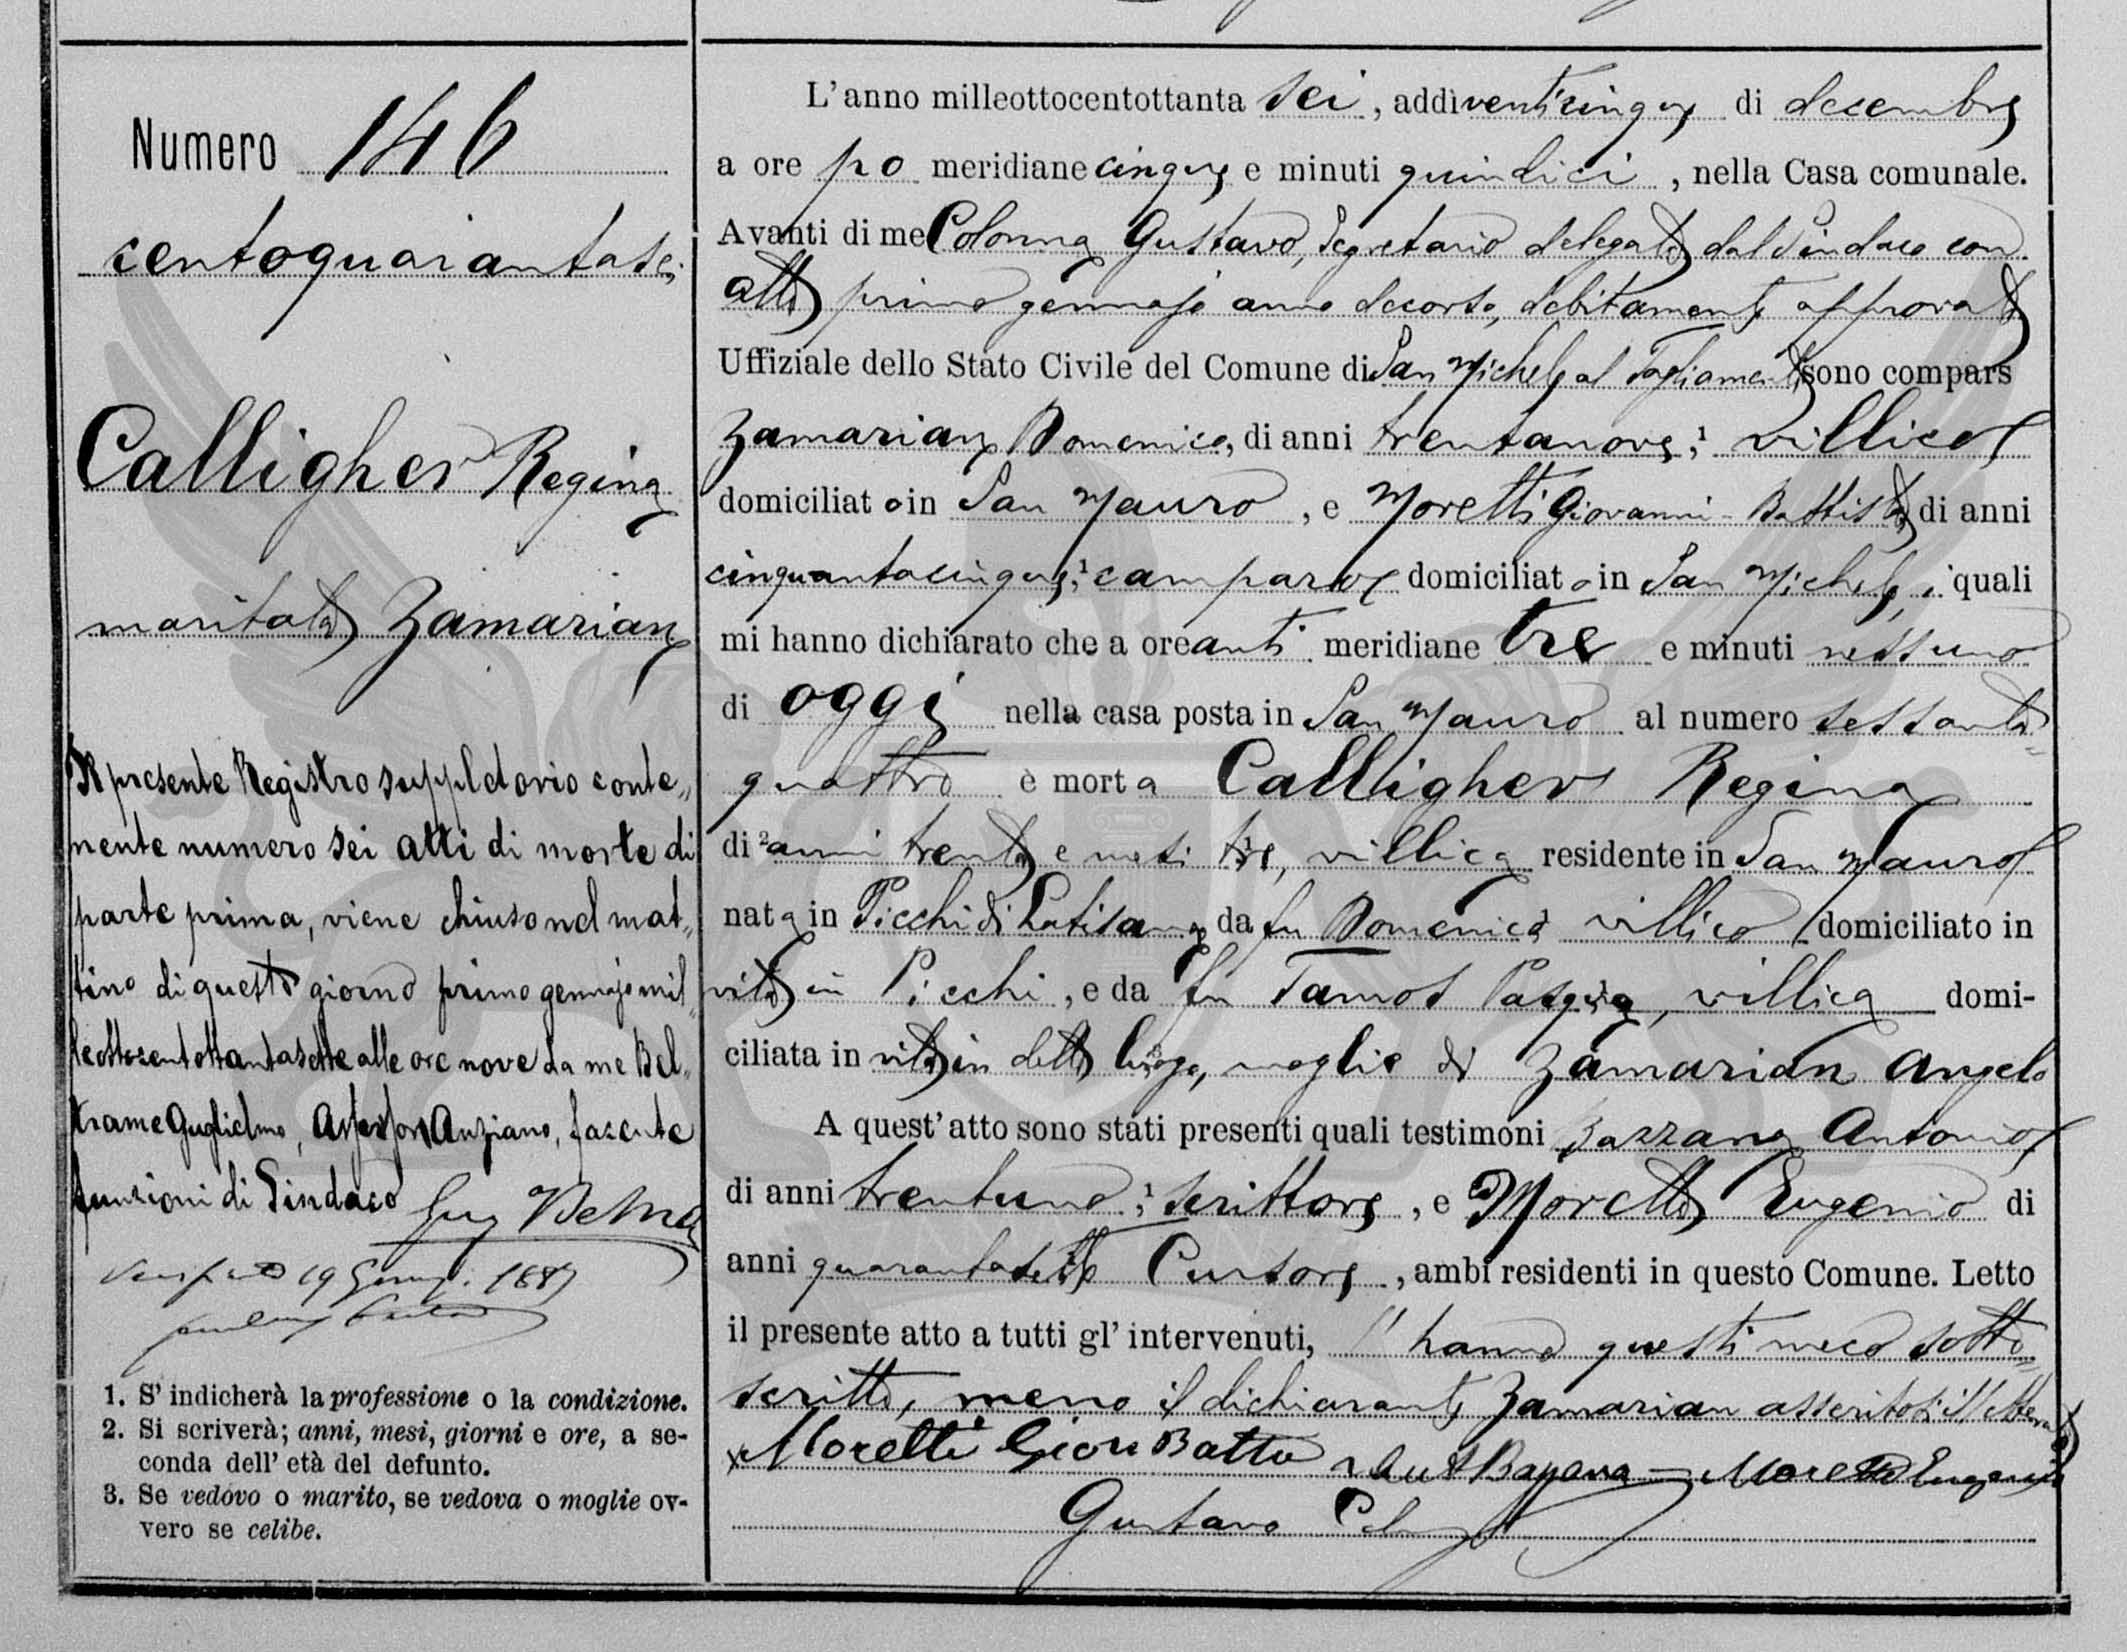 Numero 146
centoquarantasei
Calligher Regina
maritata Zamarian
Il presente Registro suppletorio conte„
nente numero sei atti di morte di
parte prima, viene chiuso nel mat„
tino di questo giorno primo gennajo mil„
leottocentottantasette alle ore nove da me Bel„
trame Guglielmo, Assessore Anziano, facente
funzioni di Sindaco
Verificato 19 1887
1. S' indicherà la professione o la condizione.
2. Si scriverà; anni, mesi, giorni e ore, a se-
conda dell' età del defunto.
3. Se vedovo o marito, se vedova o moglie ov-
vero se celibe.
L'anno milleottocentottanta sei, addì venticinque di decembre
a ore po meridiane cinque e minuti quindici, nella Casa comunale.
Avanti di me Colonna Gustavo, Segretario delegato dal Sindaco con
atto primo gennajo anno decorso, debitamente approvato
Uffiziale dello Stato Civile del Comune di San Michele al Tagliamento sono compars
Zamarian Domenico, di anni trentanove, ¹ villico
domiciliato in San Mauro, e Moretti Giovanni Battista di anni
cinquantacinque, ¹ camparo domiciliato in San Michele, i quali
mi hanno dichiarato che a ore anti meridiane tre e minuti nessuno
di oggi nella casa posta in San Mauro al numero sessanta-
quattro è morta Calligher Regina
di ² anni trenta e mesi tre, villica residente in San Mauro
nata in Picchi di Latisana da fu Domenico villico domiciliato in
vita in Picchi, e da fu Tamos Pasqua, villica domi-
ciliata in vita in detto luogo, moglie di Zamarian Angelo
A quest'atto sono stati presenti quali testimoni Bazzana Antonio
di anni trentuno, ¹ scrittore, e Moretto Eugenio di
anni quarantasette Cursore, ambi residenti in questo Comune. Letto
il presente atto a tutti gl' intervenuti, l' hanno questi meco sotto-
scritto, meno il dichiarante Zamarian asseritosi illetterato
Moretti Giov Batta Ant Bazzana — Moretto Eugenio
Gustavo